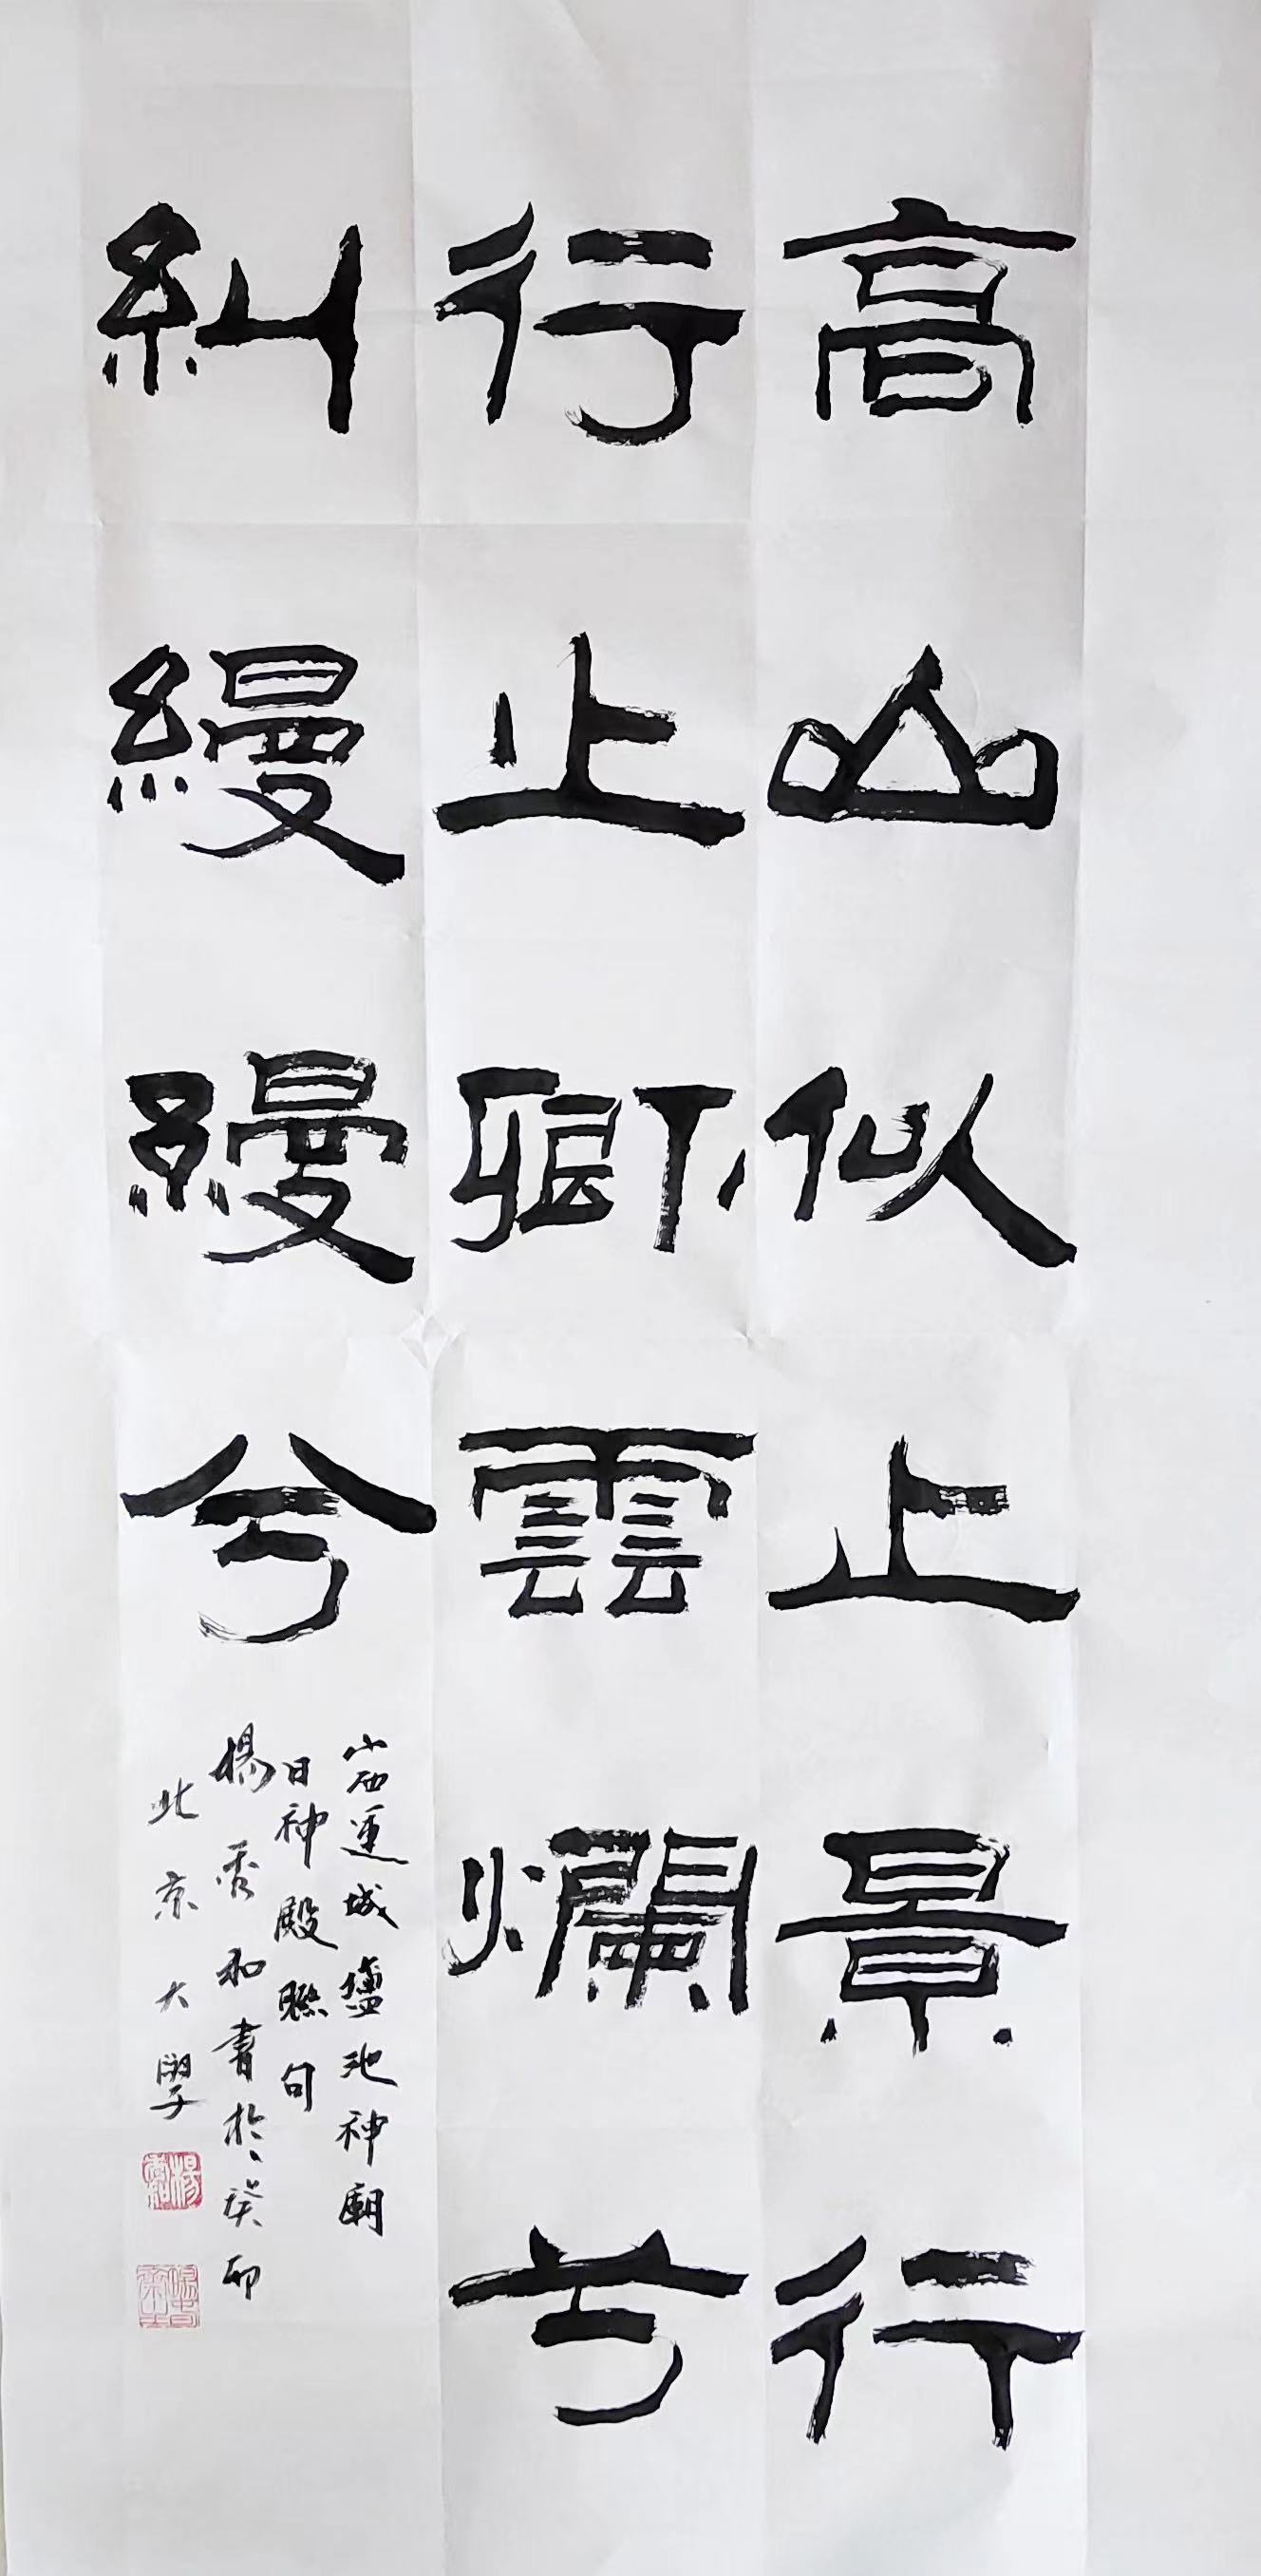 高山似止景行
行止卿雲爛兮
糾縵縵兮
山西運城鹽池神廟
日神殿聯句
楊秀和書於癸卯
北京大學